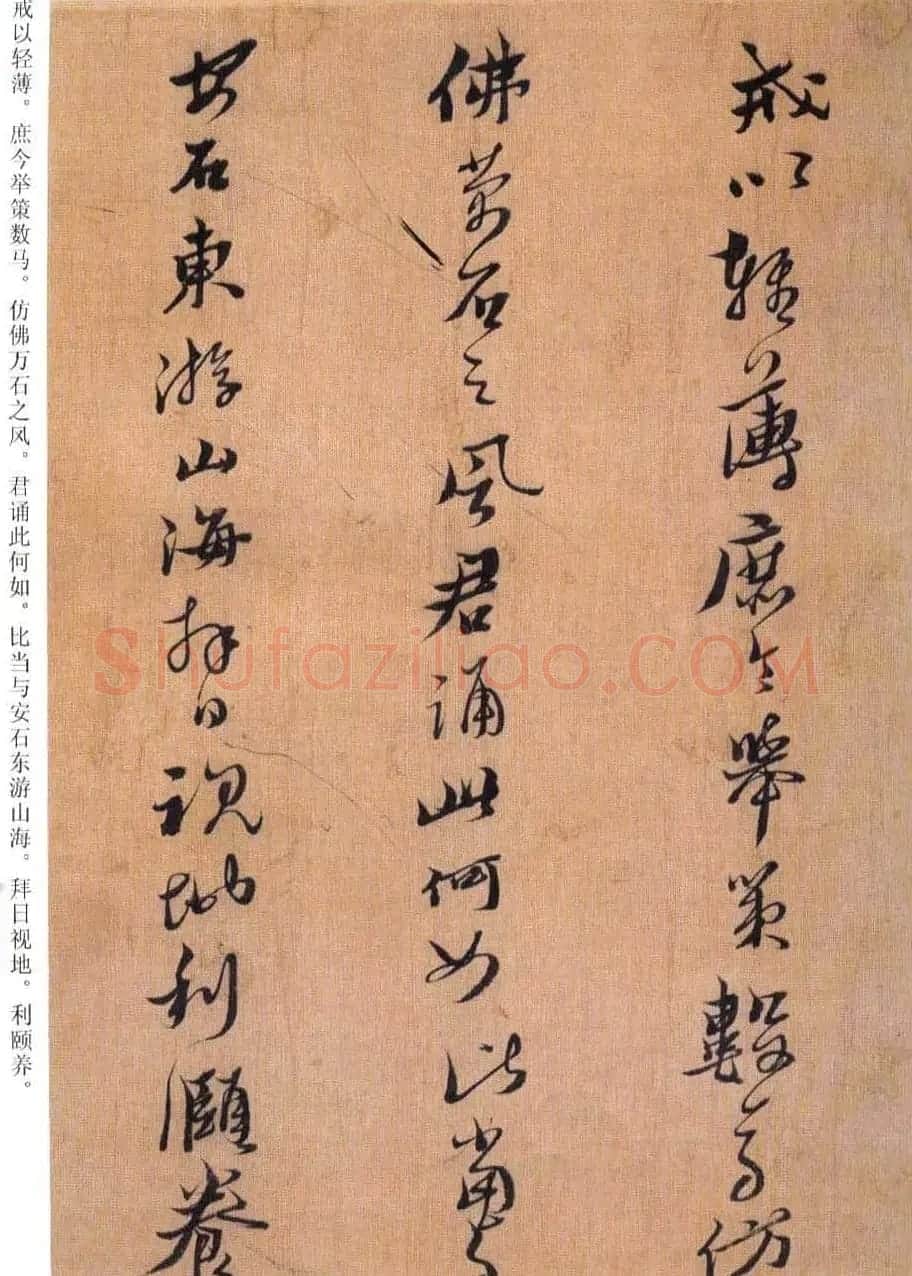 戒以輕薄庶令舉策數馬仿
佛萬石之風君誦此何如比當与
安石東游山海拜日視地利頤養
戒以轻薄。庶今举策数马。仿佛万石之风。君诵此何如。比当与安石东游山海。拜日视地。利颐养。
Shufaziliao.COM